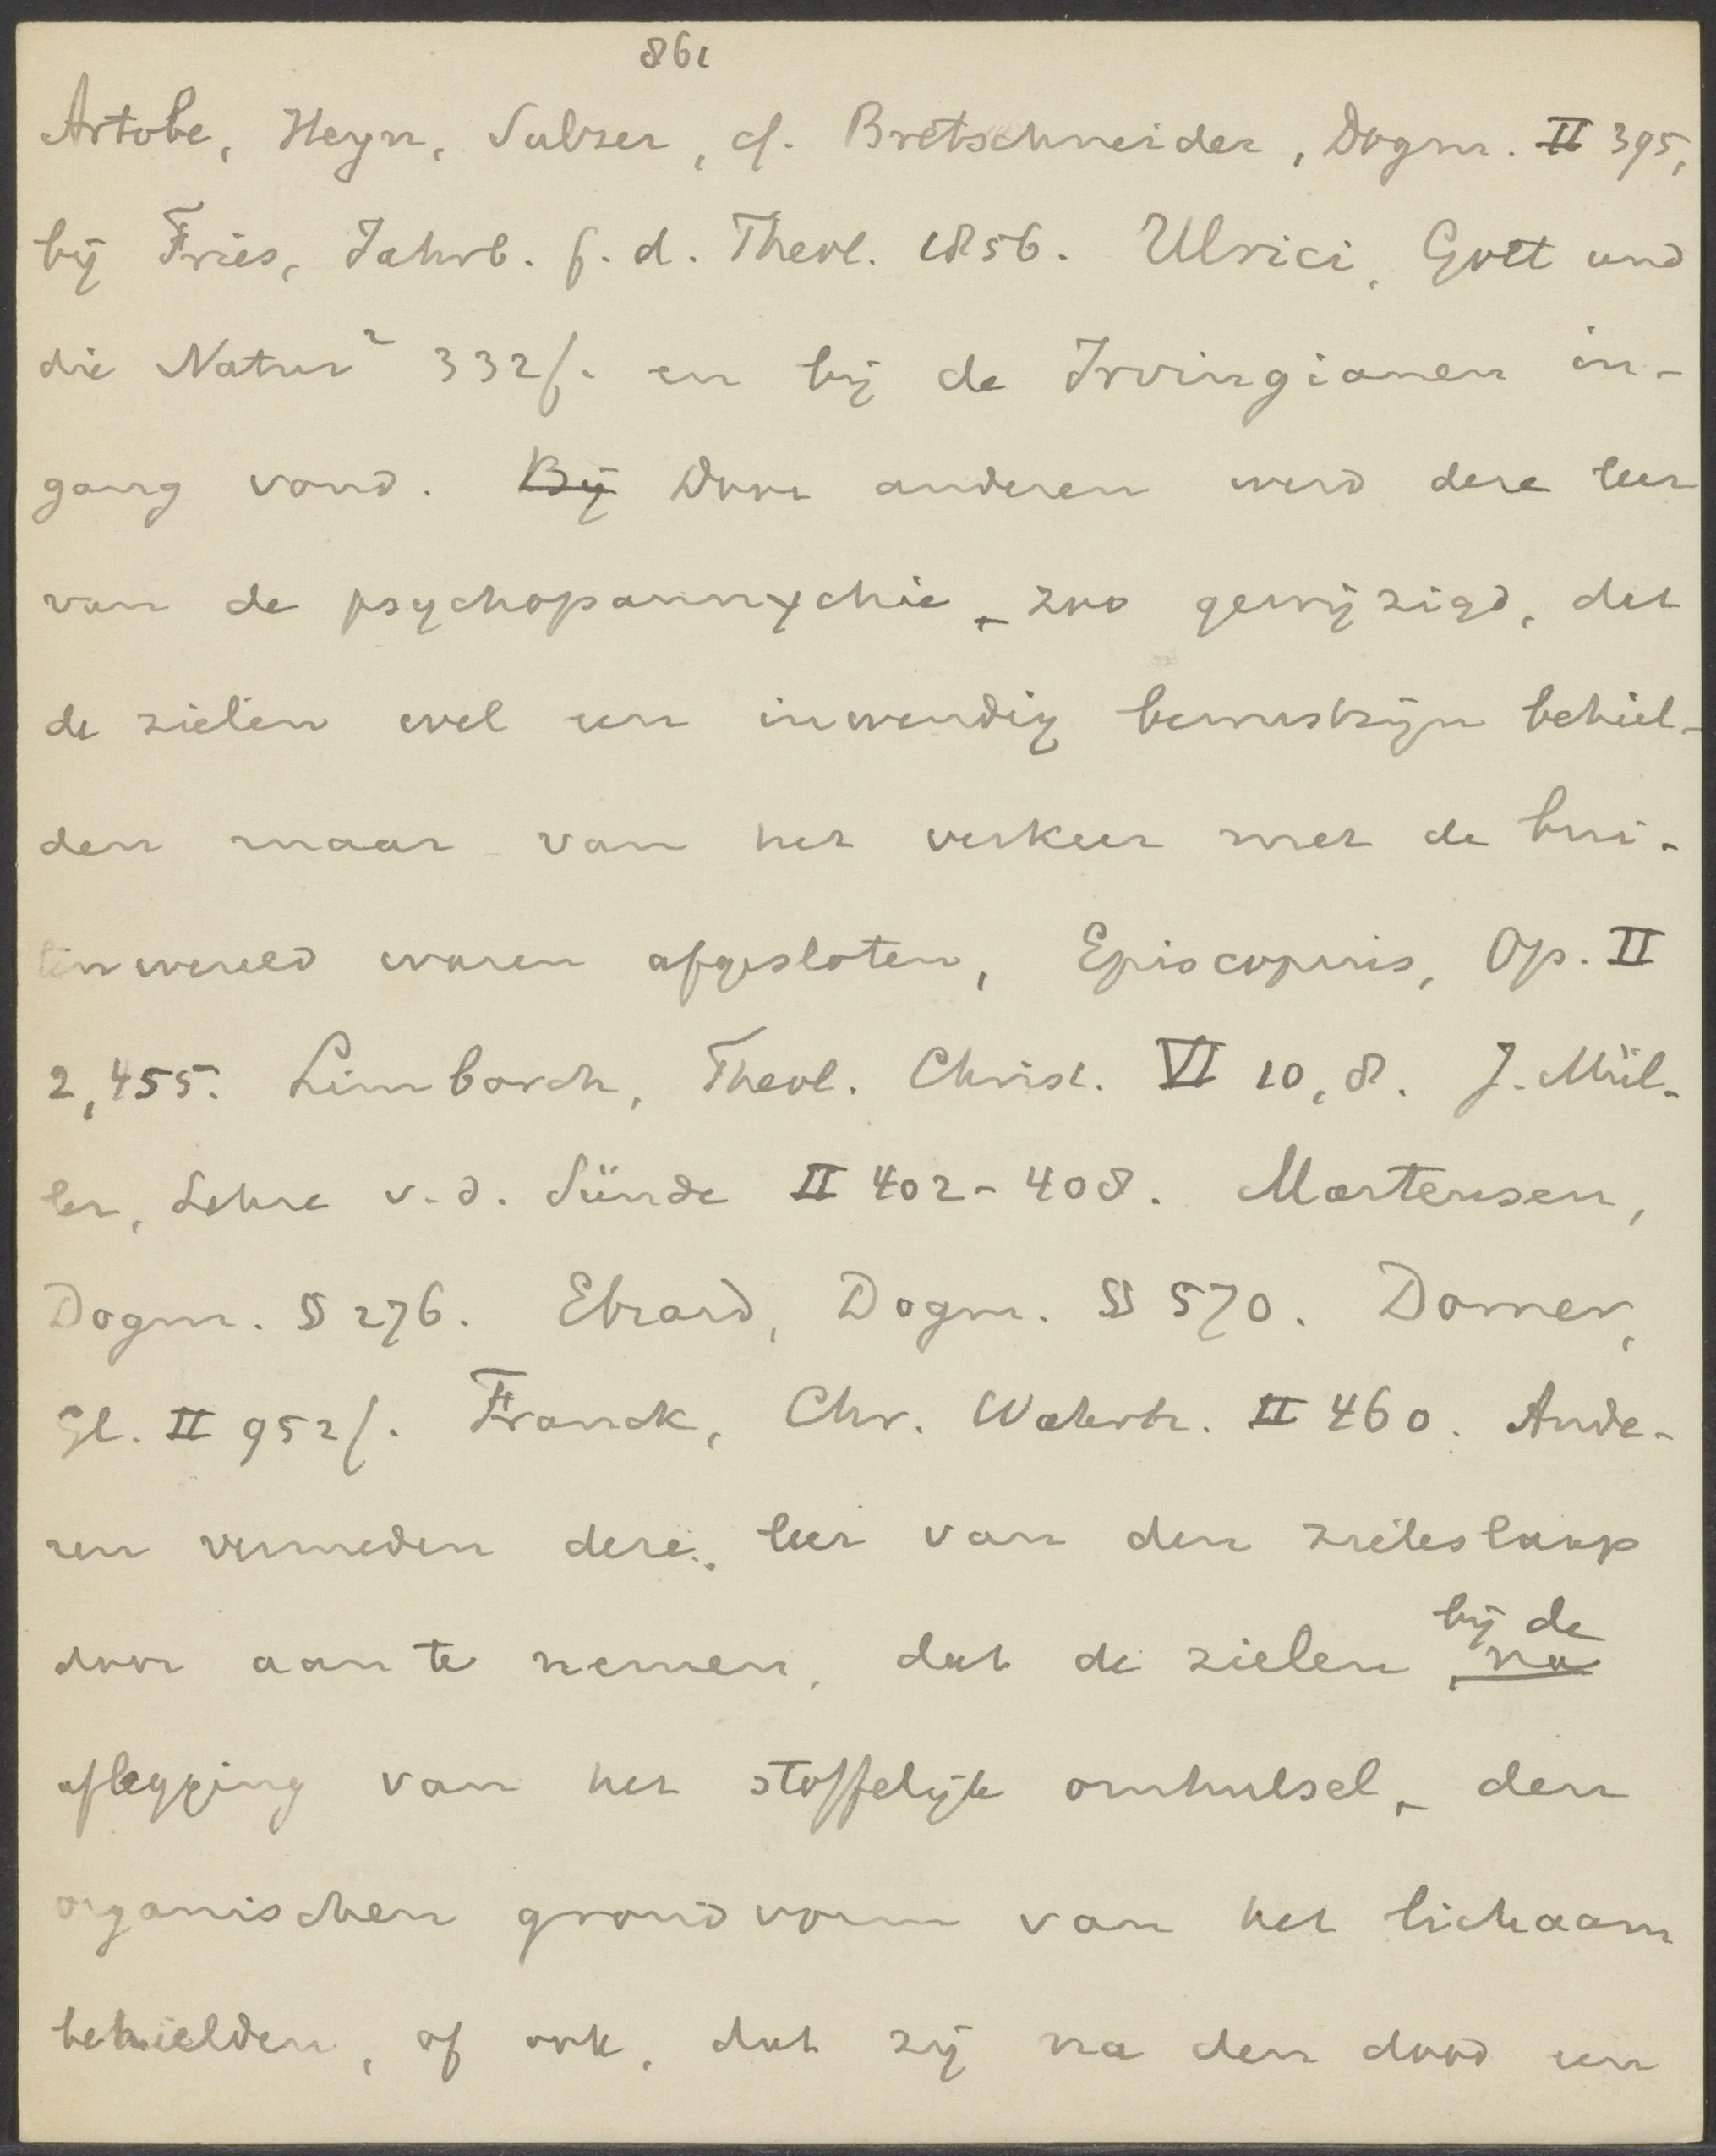 861
Artobe, Heyn, Sulzer, cf. Bretschneider, Dogm. II 395,
bij Fries, Jahrb. f. d. Theol. 1856. Ulrici, Gott und
die Natur² 332f. en bij de Irvingianen in-
gang vond. Bij Door anderen werd deze leer
van de psychopannychie, zoo gewijzigd, dat
de zielen wel een inwendig bewustzijn behiel-
den maar van het verkeer met de bui-
tenwereld waren afgesloten, Episcopius, Op. II
2,455. Limborch, Theol. Christ. VI 10,8. J. Mül-
ler, Lehre v. d. Sünde II 402-408. Martensen,
Dogm. § 276. Ebrard, Dogm. § 570. Dorner,
Gl. II 952f. Franck, Chr. Wahrh. II 460. Ande-
ren vermeden deze leer van den zieleslaap
bij de
door aan te nemen, dat de zielen, na
aflegging van het stoffelijk omhulsel, den
organischen grondvorm van het lichaam
behielden, of ook, dat zij na den dood een